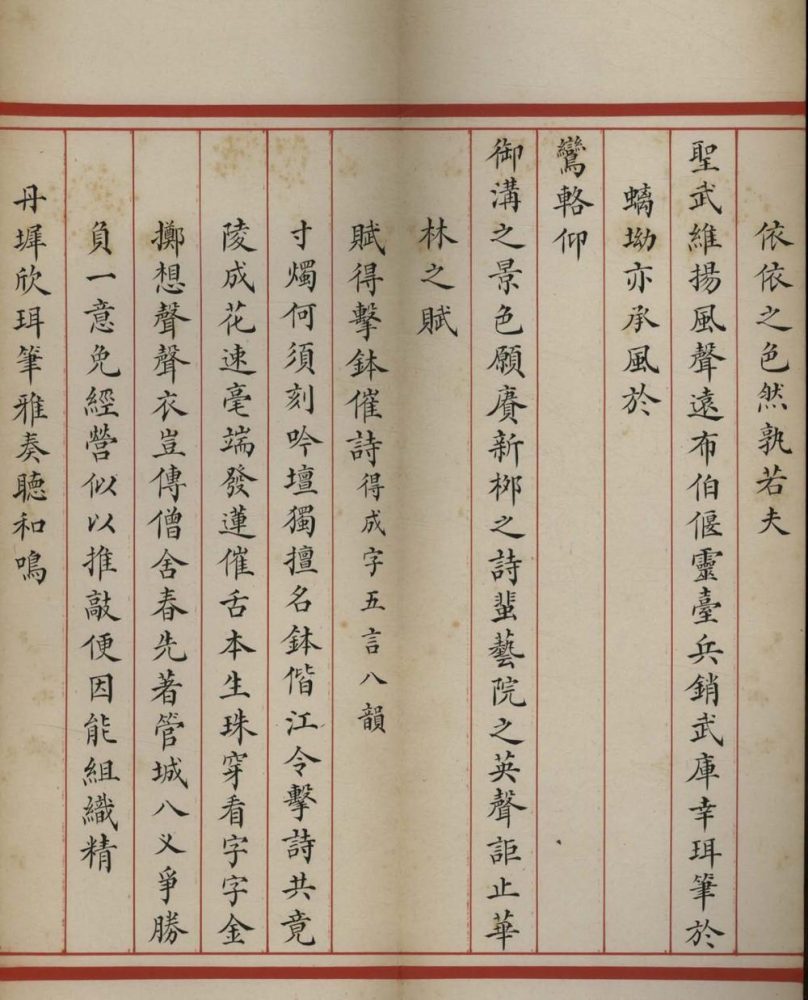 依依之色然孰若夫
聖武維揚風聲遠布伯偃靈臺兵銷武庫幸珥筆於
螭坳亦承風於
鸞輅仰
御溝之景色願賡新栁之詩蜚藝院之英聲詎止華
林之賦
賦得擊鉢催詩得成字五言八韻
寸燭何須刻吟壇獨擅名鉢偕江令擊詩共竟
陵成花速毫端發蓮催舌本生珠穿看字字金
擲想聲聲衣豈傳僧舍春先著管城八乂爭勝
負一意免經營似以推敲便因能組織精
丹墀欣珥筆雅奏聽和鳴